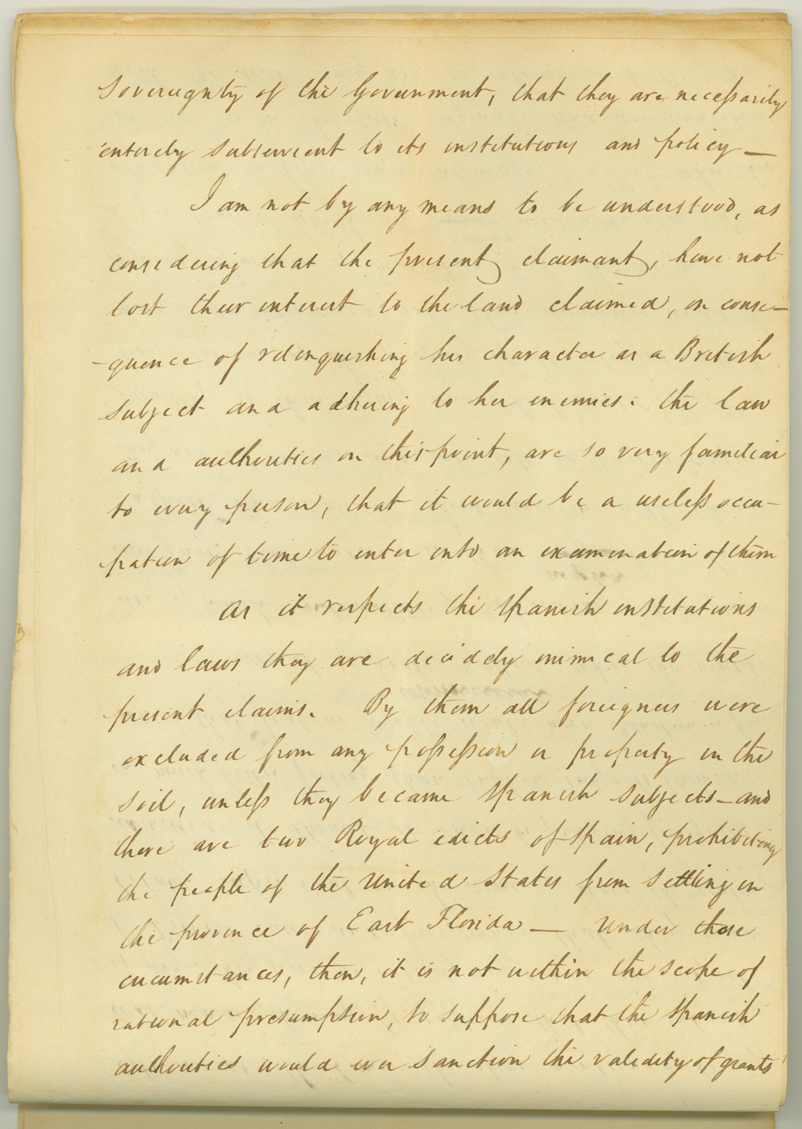 Sovereignty of the Government, that they are necessarily
entirely subservient to its institutions and policy —
I am not by any means to be understood, as
considering that the present claimant, have not
lost their interest to the land claimed, in conse-
-quence of relinquishing his character as a British
subject and adhering to her enemies: the law
and authorities on this point, are so very familiar
to every person, that it would be a useless occu-
pation of time to enter into an examination of them
As it respects the Spanish institutions
and laws they are decidely inimical to the
present claims. By them all foreigners were
excluded from any possession or property in the
soil, unless they became Spanish subjects — and
there are two Royal edicts of Spain, prohibiting
the people of the United States from settling in
the province of East Florida — Under these
circumstances, then, it is not within the scope of
rational presumption, to suppose that the Spanish
authorities would ever sanction the validity of grants